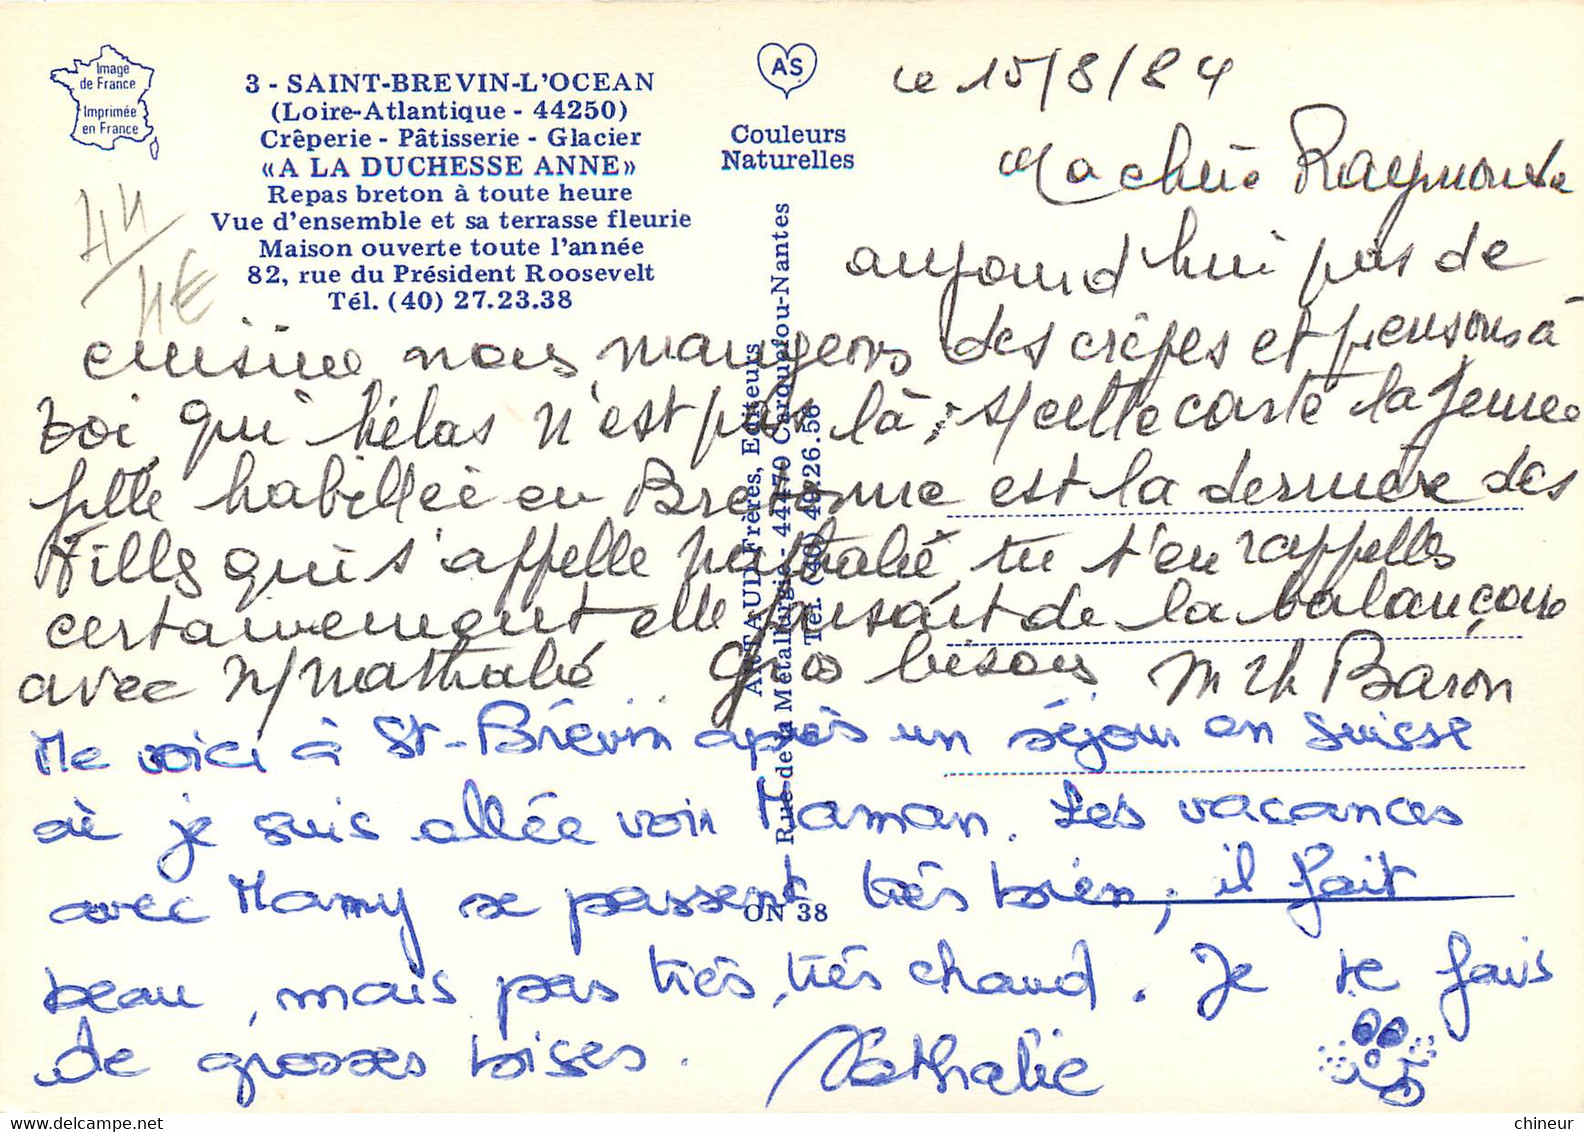 Image
de France
Imprimée
en France
3 - SAINT-BREVIN-L'OCEAN
(Loire-Atlantique - 44250)
Crêperie - Pâtisserie - Glacier
«A LA DUCHESSE ANNE»
Repas breton à toute heure
Vue d'ensemble et sa terrasse fleurie
Maison ouverte toute l'année
82, rue du Président Roosevelt
Tél. (40) 27.23.38
44
4€
AS
Couleurs
Naturelles
ARTAUD Frères, Editeurs
Rue de la Métallurgie - 44470 Carquefou-Nantes
Tél. (40) 49.26.56
ON 38
le 15/8/84
Ma chère Raymonde
aujourd'hui pas de
cuisine nous mangeons des crêpes et pensons à
toi qui hélas n'est pas là ; s/cette carte la jeune
fille habillée en Bretonne est la dernière des
Fills qui s'appelle Nathalie tu t'en rappelles
certainement elle faisait de la balançoire
avec n/nathalie. Gros bisous M Baron
Me voici à St-Brévin après un séjour en Suisse
où je suis allée voir Maman. Les vacances
avec Mamy se passent très bien ; il fait
beau, mais pas très, très chaud. Je te fais
de grosses bises. Nathalie
chineur